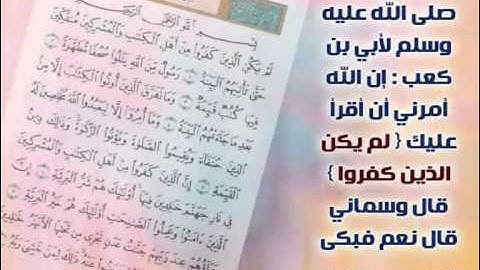 صلى الله عليه
وسلم لأبي بن
كعب : إن الله
أمرني أن أقرأ
عليك { لم يكن
الذين كفروا }
قال وسماني
قال نعم فبكى
بسم الله الرحمن الرحيم
لم يكن الذين كفروا من أهل الكتب والمشركين منفكين
حتى تأتيهم البينة رسول من الله يتلوا صحفا مطهرة
فيها كتب قيمة وما تفرق الذين أوتوا الكتب إلا من
بعد ما جاءتهم البينة وما أمروا إلا ليعبدوا الله مخلصين له
الدين حنفاء ويقيموا الصلوة ويؤتوا الزكوة وذلك دين
القيمة إن الذين كفروا من أهل الكتب والمشركين
في نار جهنم خلدين فيها أولئك هم شر البرية إن
الذين ءامنوا وعملوا الصلحت أولئك هم خير البرية
جزاؤهم عند ربهم جنت عدن تجري من تحتها الأنهر خلدين
فيها أبدا رضي الله عنهم ورضوا عنه ذلك لمن خشي ربه